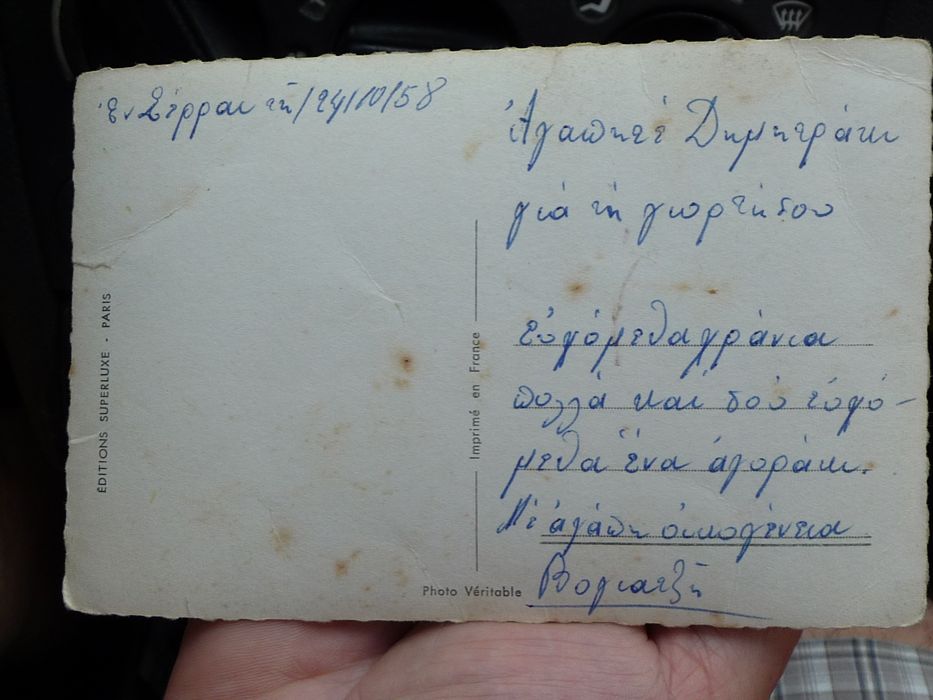 Ἐν Σέρραι τῇ/24/10/58
Ἀγαπητέ Δημητράκι
γιά τη γιορτή σου
εὐχόμεθα χρόνια
πολλά και σου εὐχό-
μεθα ἕνα ἀγοράκι.
Μέ ἀγάπη οἰκογένεια
Βογιατζή
ÉDITIONS SUPERLUXE - PARIS
Imprimé en France
Photo Véritable